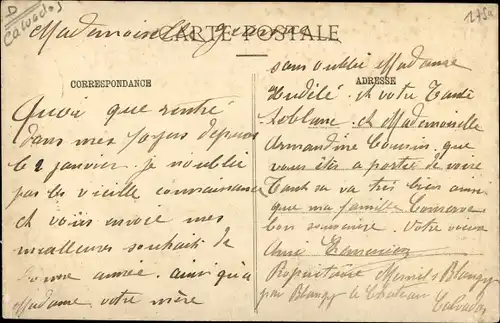 D
Calvados
275a
CARTE POSTALE
Mademoiselle
CORRESPONDANCE
Quoi que rentré
dans mes foyers depuis
le 2 janvier. je noublie
pas les vieille connaissance
et vous envoie mes
meilleures souhait de
bonne année. ainsi qu'a
Madame votre mère
sans oublié Madame
ADRESSE
et votre Tante
Leblanc. et Mademoiselle
Armandine Cousin. que
vous êtes a portée de voire
Tant sa va très bien ainsi
que ma famille Conserve
bon souvenire. Votre vieux
Ami
Propriétaire Mesnil s Blangy
par Blangy le Chateau
Calvados